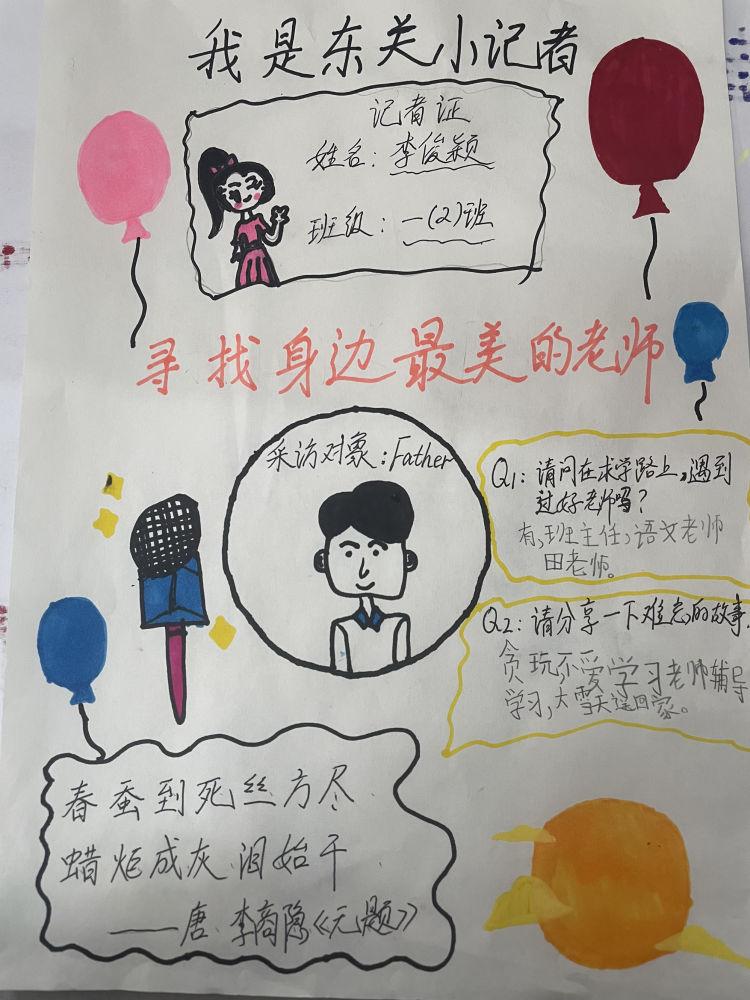 我是东关小记者
记者证
姓名：李俊颖
班级：一(2)班
寻找身边最美的老师
采访对象：Father
Q1：请问在求学路上，遇到
过好老师吗？
有，班主任，语文老师
田老师。
Q2：请分享一下难忘的故事.
贪玩不爱学习老师辅导
学习，大雪天送回家。
春蚕到死丝方尽
蜡炬成灰泪始干
——唐.李商隐《无题》